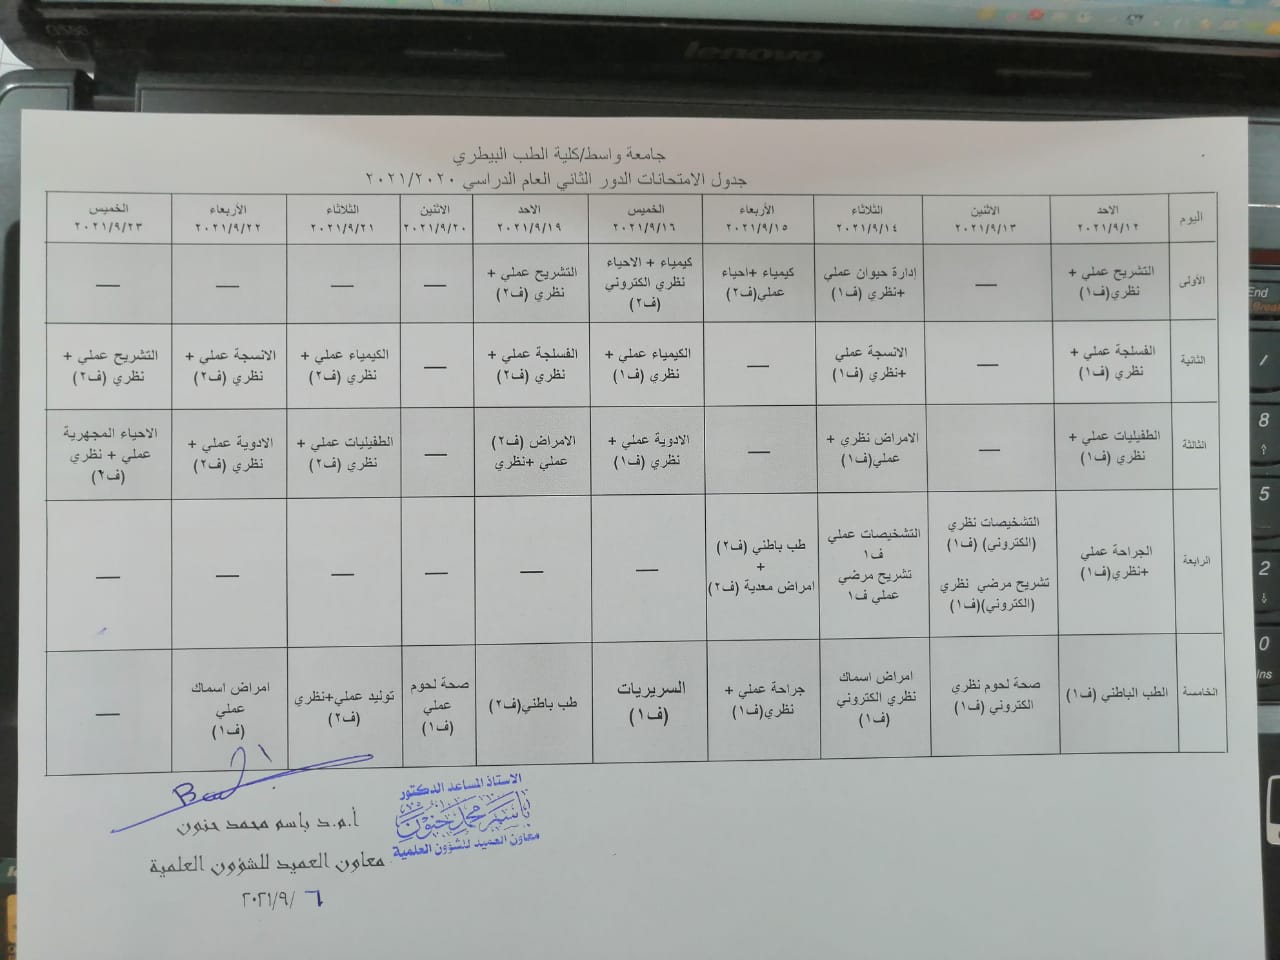 lenovo
جامعة واسط/كلية الطب البيطري
جدول الامتحانات الدور الثاني العام الدراسي ٢٠٢١/٢٠٢٠
اليوم
الاحد
٢٠٢١/٩/١٢
الاثنين
٢٠٢١/٩/١٣
الثلاثاء
٢٠٢١/٩/١٤
الأربعاء
٢٠٢١/٩/١٥
الخميس
٢٠٢١/٩/١٦
الاحد
٢٠٢١/٩/١٩
الاثنين
٢٠٢١/٩/٢٠
الثلاثاء
٢٠٢١/٩/٢١
الأربعاء
٢٠٢١/٩/٢٢
الخميس
٢٠٢١/٩/٢٣
الأولى
التشريح عملي +
نظري(ف١)
—
ادارة حيوان عملي
+نظري (ف١)
كيمياء +احياء
عملي(ف٢)
كيمياء + الاحياء
نظري الكتروني
(ف٢)
التشريح عملي +
نظري (ف٢)
—
—
—
—
الثانية
الفسلجة عملي +
نظري (ف١)
—
الانسجة عملي
+نظري (ف١)
—
الكيمياء عملي +
نظري (ف١)
الفسلجة عملي +
نظري (ف٢)
—
الكيمياء عملي +
نظري (ف٢)
الانسجة عملي +
نظري (ف٢)
التشريح عملي +
نظري (ف٢)
الثالثة
الطفيليات عملي +
نظري (ف١)
—
الامراض نظري +
عملي(ف١)
—
الادوية عملي +
نظري (ف١)
الامراض (ف٢)
عملي +نظري
—
الطفيليات عملي +
نظري (ف٢)
الادوية عملي +
نظري (ف٢)
الاحياء المجهرية
عملي + نظري
(ف٢)
الرابعة
الجراحة عملي
+نظري(ف١)
التشخيصات نظري
(الكتروني) (ف١)
تشريح مرضي نظري
(الكتروني)(ف١)
التشخيصات عملي
ف١
تشريح مرضي
عملي ف١
طب باطني (ف٢)
+
امراض معدية (ف٢)
—
—
—
—
—
—
الخامسة
الطب الباطني (ف١)
صحة لحوم نظري
الكتروني (ف١)
امراض اسماك
نظري الكتروني
(ف١)
جراحة عملي +
نظري(ف١)
السريريات
(ف١)
طب باطني(ف٢)
صحة لحوم
عملي
(ف١)
توليد عملي+نظري
(ف٢)
امراض اسماك
عملي
(ف١)
—
الاستاذ المساعد الدكتور
باسم محمد حنون
معاون العميد للشؤون العلمية
أ.م.د باسم محمد حنون
معاون العميد للشؤون العلمية
٢٠٢١/٩/ ٦
End
8
5
2
0
Ins